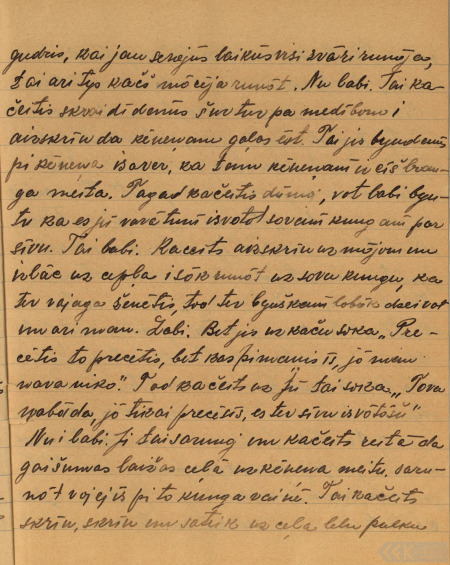 gudris, kai jau senejūs laikūs visi zvāri runōja,
tai ari tys kačs mōcēja runōt. Nu labi. Tai ka-
čeitis skraidīdams šur tur pa medībom i
aizskrīn da kēneņam golos īst. Tai jis byudams
pi kēneņa isaver, ka tam kēneņam ir eiš brau-
ga meita. Tagad kačeitis dūmoj, vot labi byu-
tu ka es jū varātum isvotot sovam kungam par
sīvu. Tai labi. Kaceits aizskrīn uz mōjom un
uzlāc uz cepļa i sōk runōt uz sovu kungu, ka
tev vajaga ženētis, tod tev byuškam lobōk dzeivot
un ari man. Labi. Bet jis uz kaču soka „Pre-
cētis to precētis, bet kas pi manis īs, jō man
nava niko." Tod kačeits uz jū tai soka „Tova
nabāda, jō tikai precēsīs, es tev sīvu isvōtōšu"
Nu i labi. Ji tai sarunoj un kačeits reitā da
gaišumas laižas ceļā uz kēneņa meitu, saru-
nōt vojejīs pi to kunga vai nē. Tai kačeits
skrīn, skrīn un satik uz ceļa lelu pulku